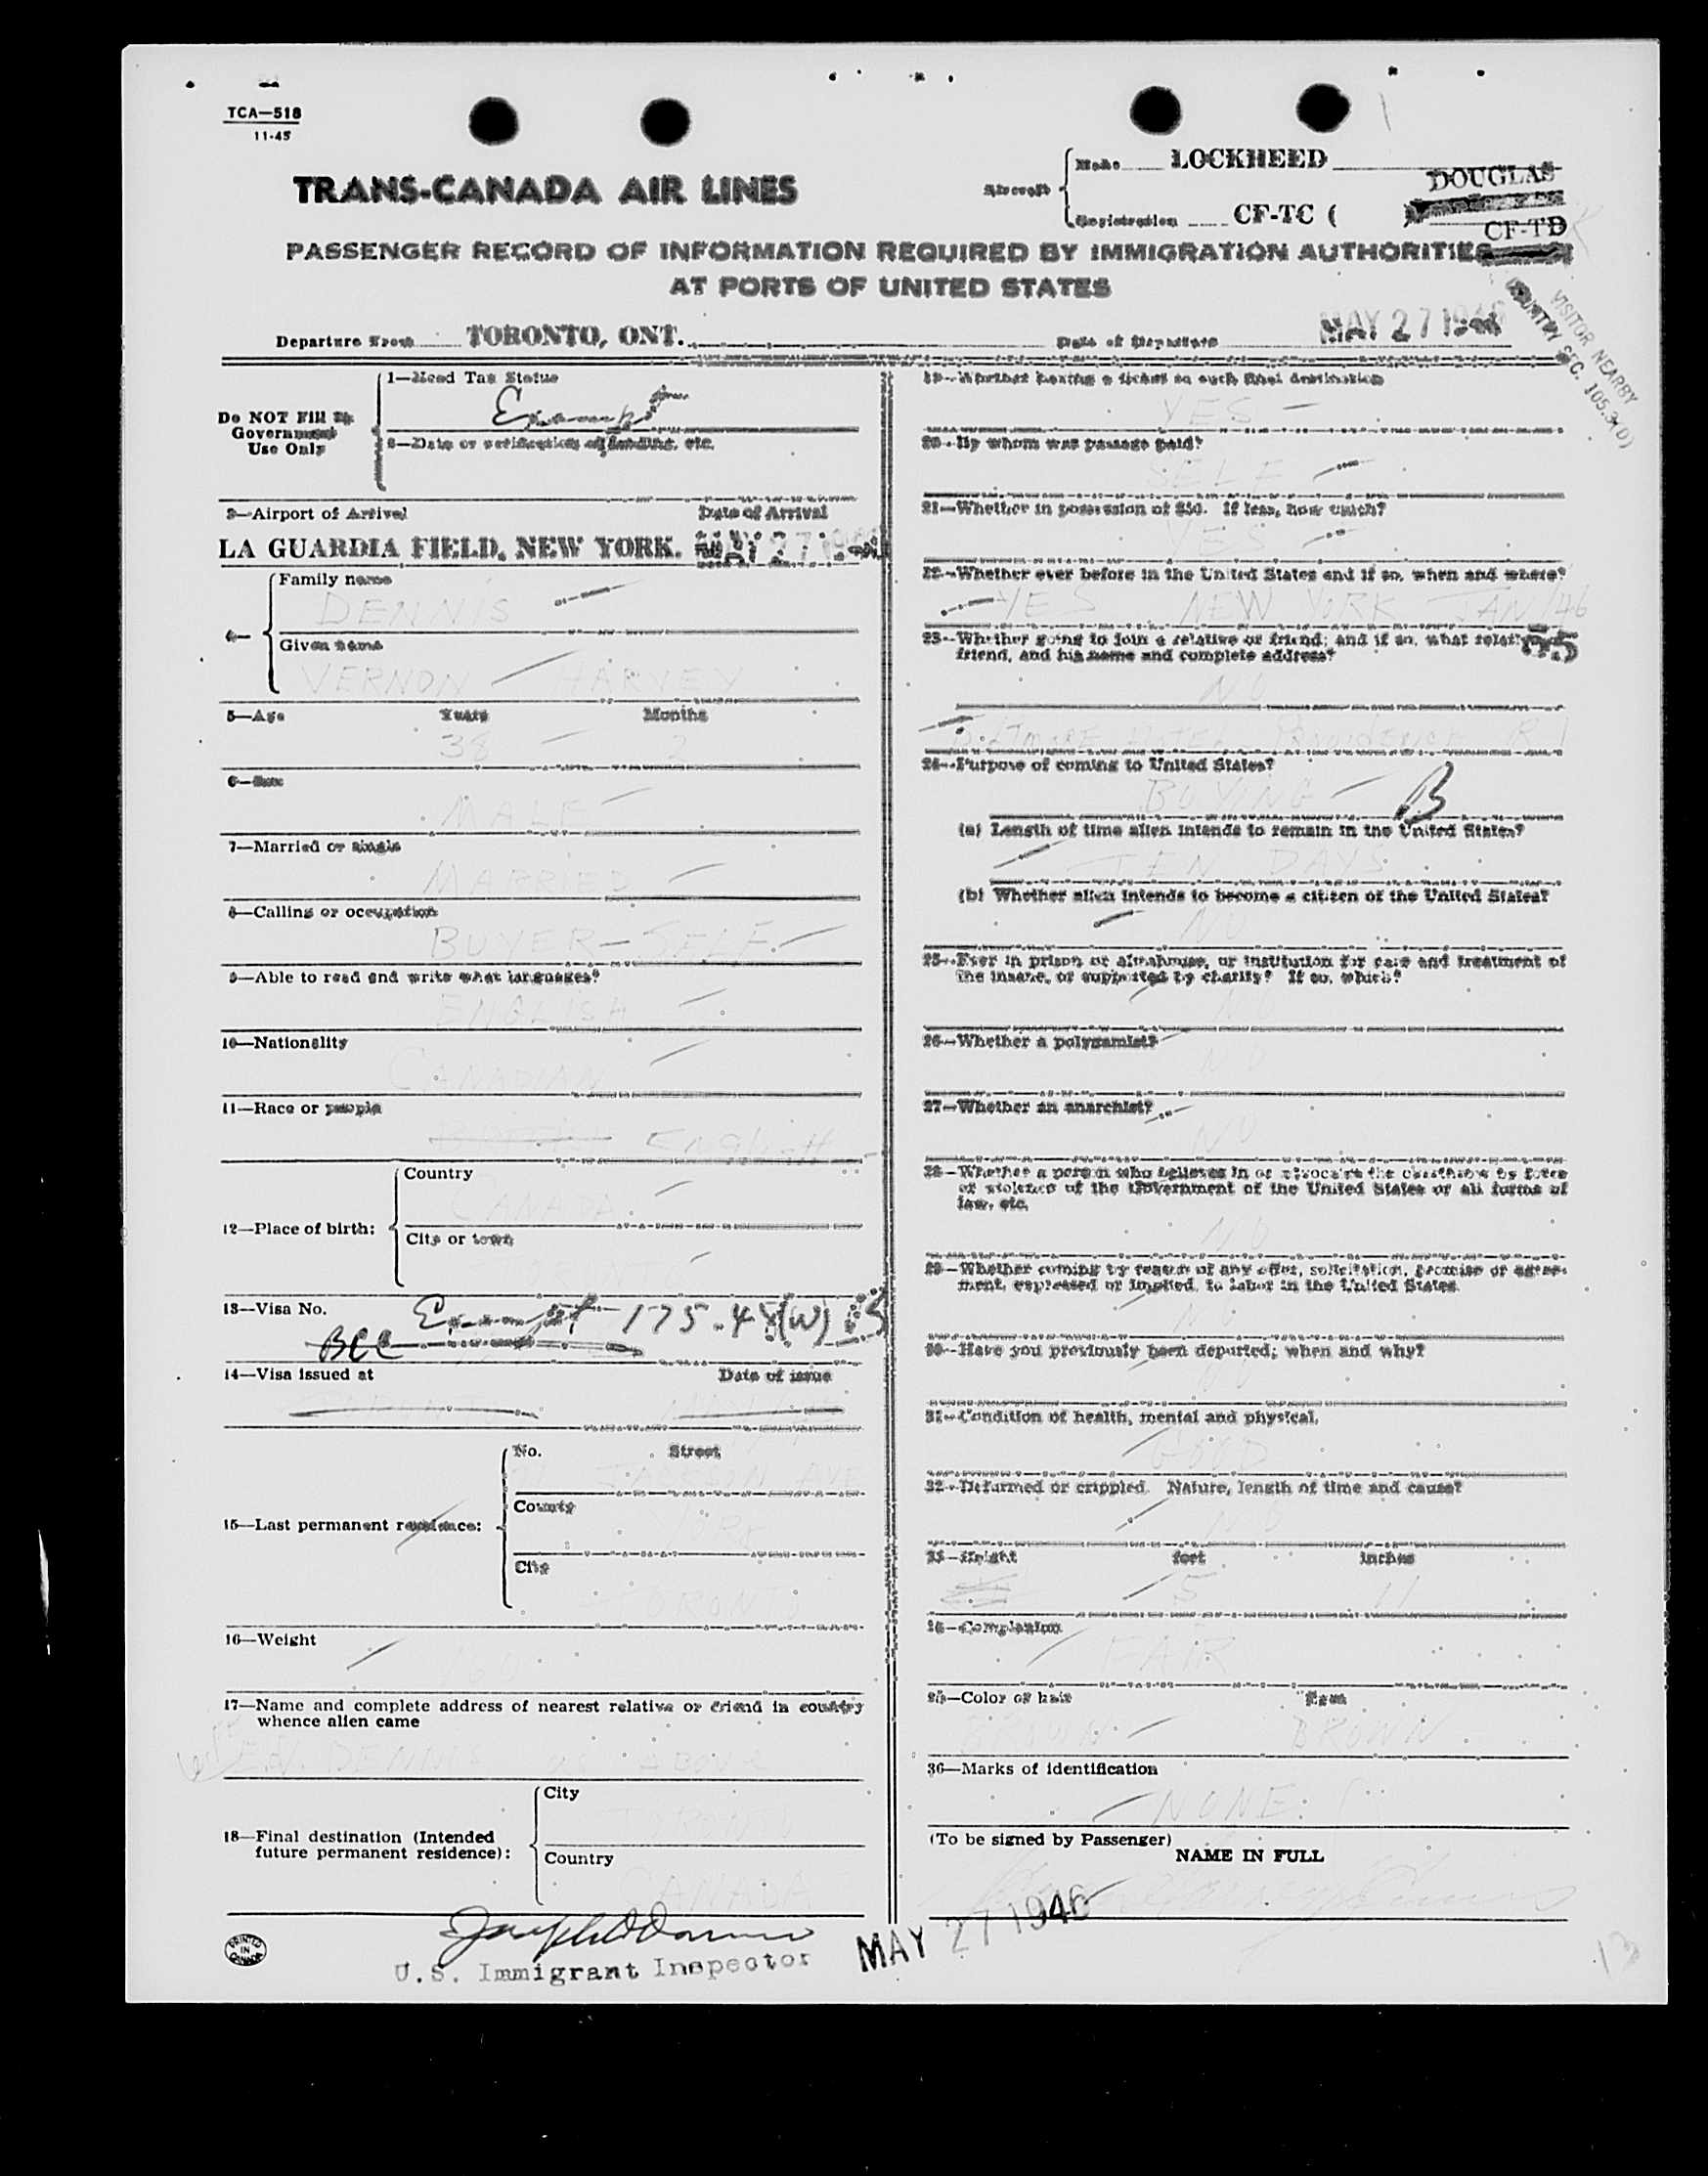 TCA—518
11-45
TRANS-CANADA AIR LINES
Aircraft
Make LOCKHEED
DOUGLAS
Registration CF-TC (
CF-TD
PASSENGER RECORD OF INFORMATION REQUIRED BY IMMIGRATION AUTHORITIES
AT PORTS OF UNITED STATES
VISITOR NEARBY
COUNTRY SEC. 105.3(0)
Departure From TORONTO, ONT.
Date of Departure MAY 27 1946
Do NOT Fill In
Government
Use Only
1—Head Tax Status
Exempt
2—Date or verification of landing, etc.
3—Airport of Arrival
Date of Arrival
LA GUARDIA FIELD, NEW YORK. MAY 27 1946
4—
Family name
DENNIS
Given name
VERNON HARVEY
5—Age Years Months
38 2
6—Sex
MALE
7—Married or single
MARRIED
8—Calling or occupation
BUYER—SELF
9—Able to read and write what languages?
ENGLISH
10—Nationality
CANADIAN
11—Race or people
English
12—Place of birth:
Country
CANADA
City or town
13—Visa No.
Exempt 175.45(W)
BCC
14—Visa issued at Date of issue
15—Last permanent residence:
No. Street
JACKSON AVE
County
YORK
City
TORONTO
16—Weight
17—Name and complete address of nearest relative or friend in country
whence alien came
DENNIS as ABOVE
18—Final destination (Intended
future permanent residence):
City
TORONTO
Country
CANADA
19—Whether having a ticket to such final destination
YES
20—By whom was passage paid?
SELF
21—Whether in possession of $50. If less, how much?
YES
22—Whether ever before in the United States and if so, when and where?
YES NEW YORK JAN/46
23—Whether going to join a relative or friend; and if so, what relative or
friend, and his name and complete address?
NO
BILTMORE HOTEL PROVIDENCE R I
24—Purpose of coming to United States?
BUYING B
(a) Length of time alien intends to remain in the United States?
TEN DAYS
(b) Whether alien intends to become a citizen of the United States?
NO
25—Ever in prison or almshouse, or institution for care and treatment of
the insane, or supported by charity? If so, which?
NO
26—Whether a polygamist?
NO
27—Whether an anarchist?
NO
28—Whether a person who believes in or advocates the overthrow by force
or violence of the Government of the United States or all forms of
law, etc.
NO
29—Whether coming by reason of any offer, solicitation, promise or agree-
ment, expressed or implied, to labor in the United States
NO
30—Have you previously been deported; when and why?
NO
31—Condition of health, mental and physical.
GOOD
32—Deformed or crippled. Nature, length of time and cause?
NO
33—Height feet inches
5 11
34—Complexion
FAIR
35—Color of hair Eyes
BROWN BROWN
36—Marks of identification
NONE
(To be signed by Passenger)
NAME IN FULL
PRINTED
IN
CANADA
U.S. Immigrant Inspector
MAY 27 1946